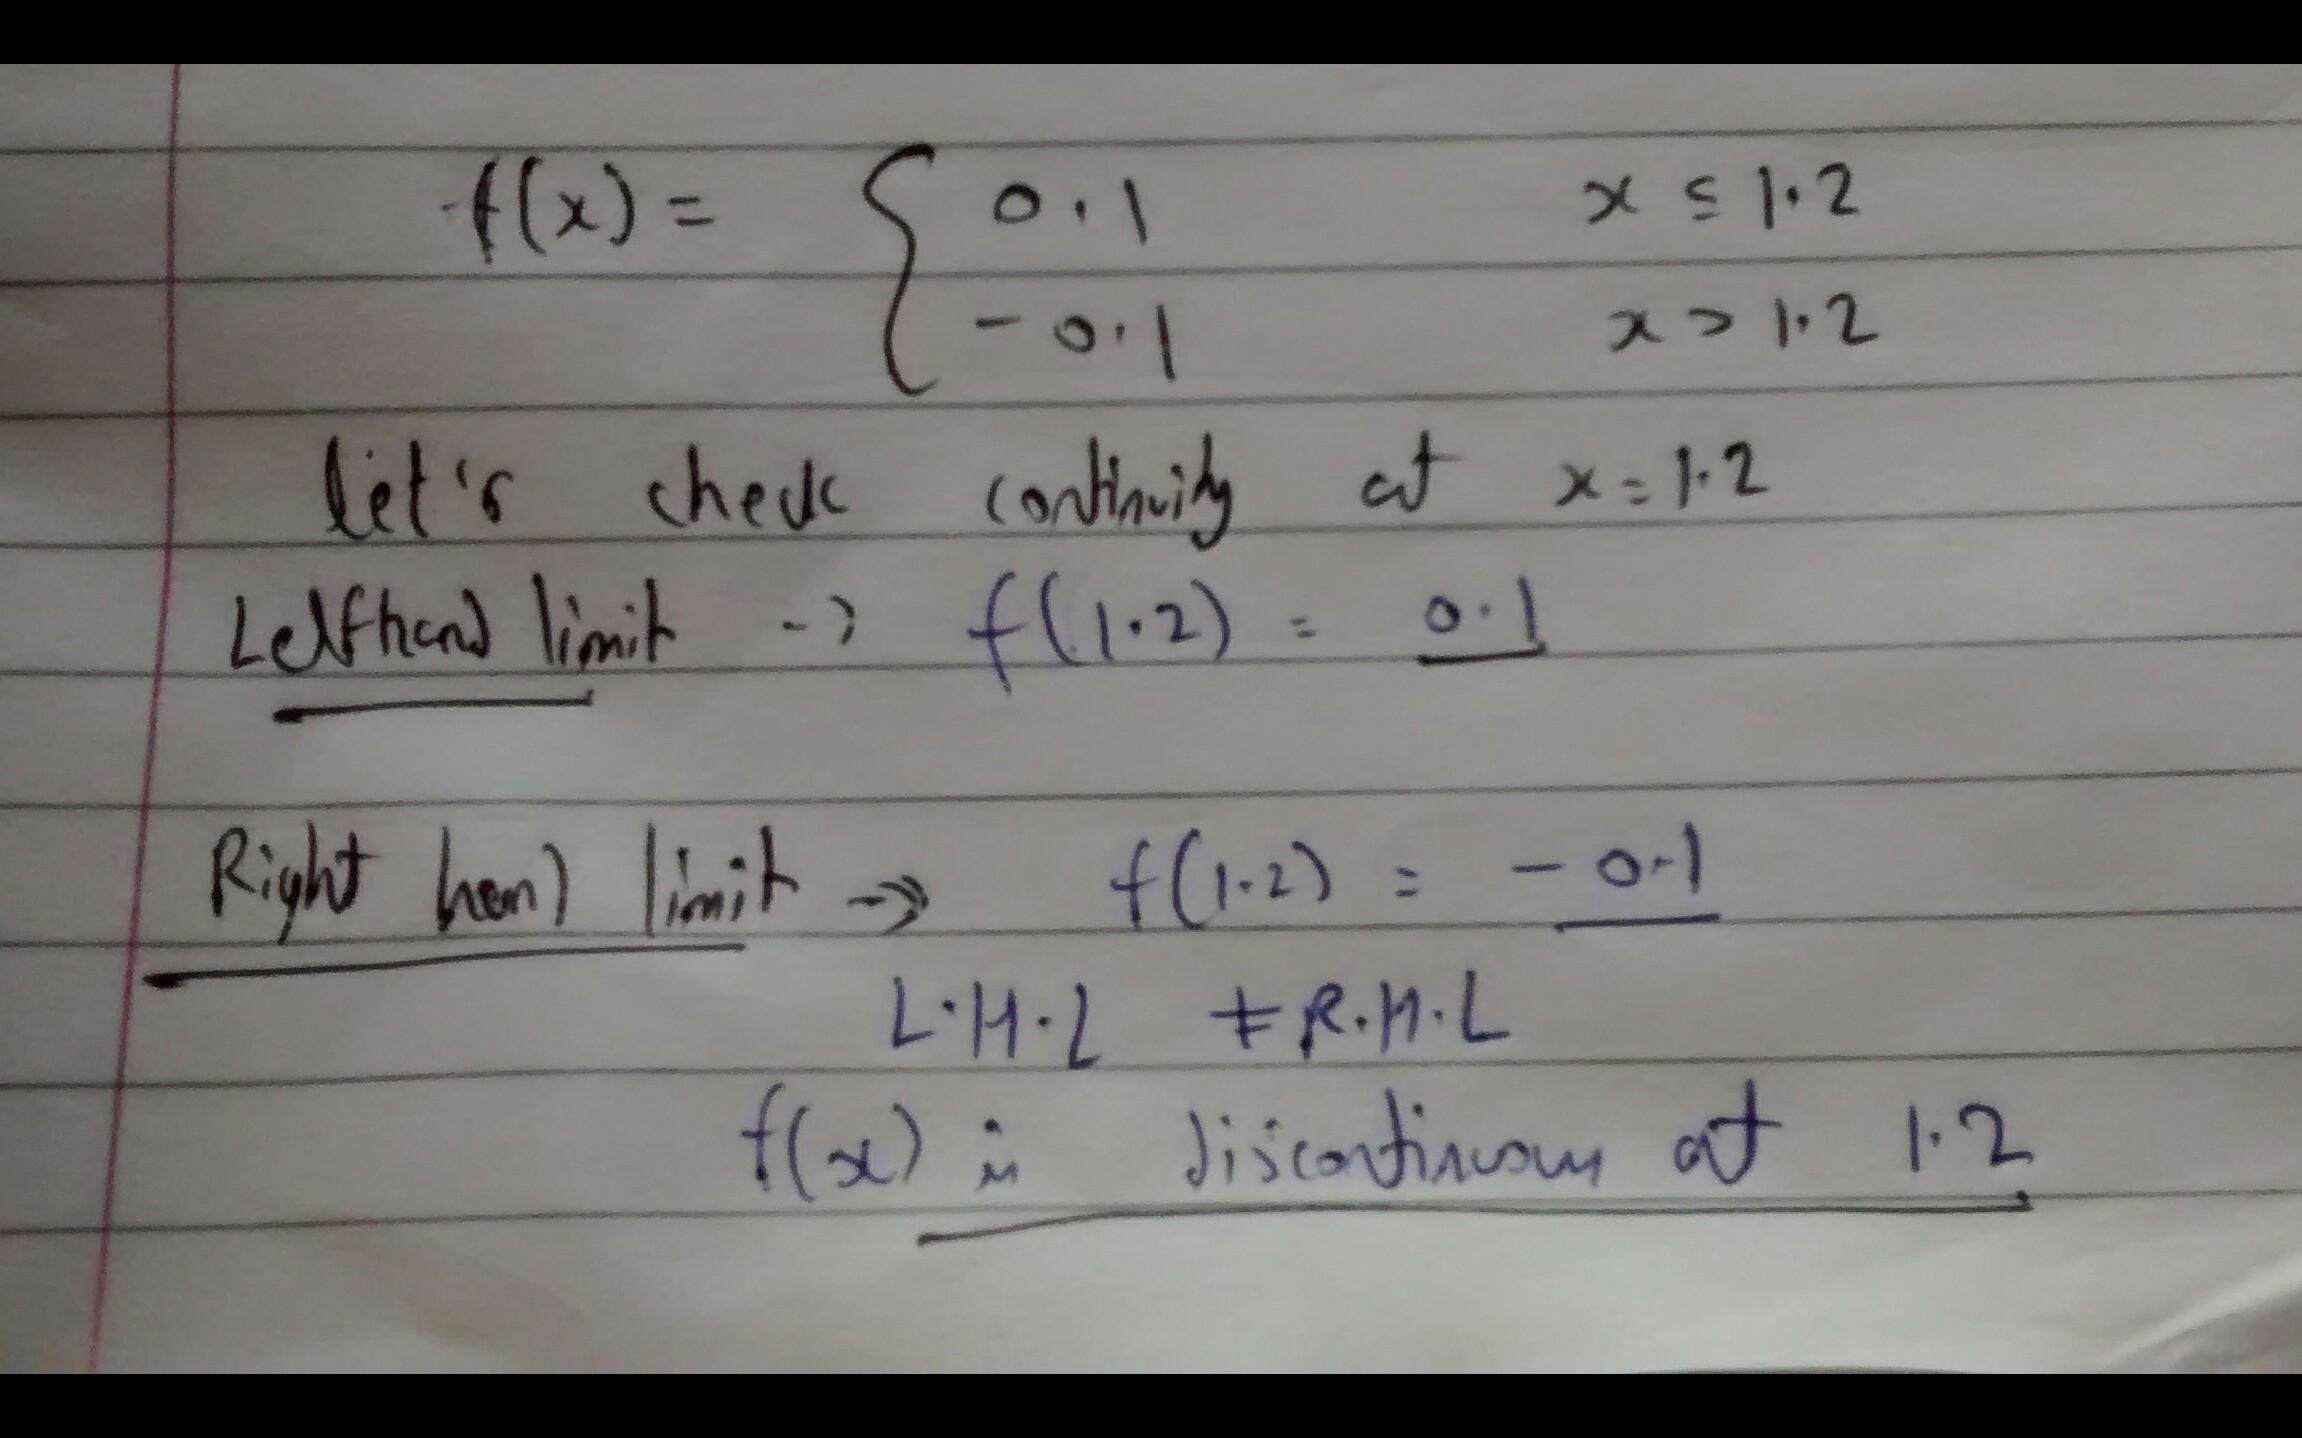 f(x) = { 0.1 x ≤ 1.2
-0.1 x > 1.2
let's check continuity at x = 1.2
Lefthand limit -> f(1.2) = 0.1
Right hand limit ->> f(1.2) = -0.1
L.H.L ≠ R.H.L
f(x) is discontinuous at 1.2